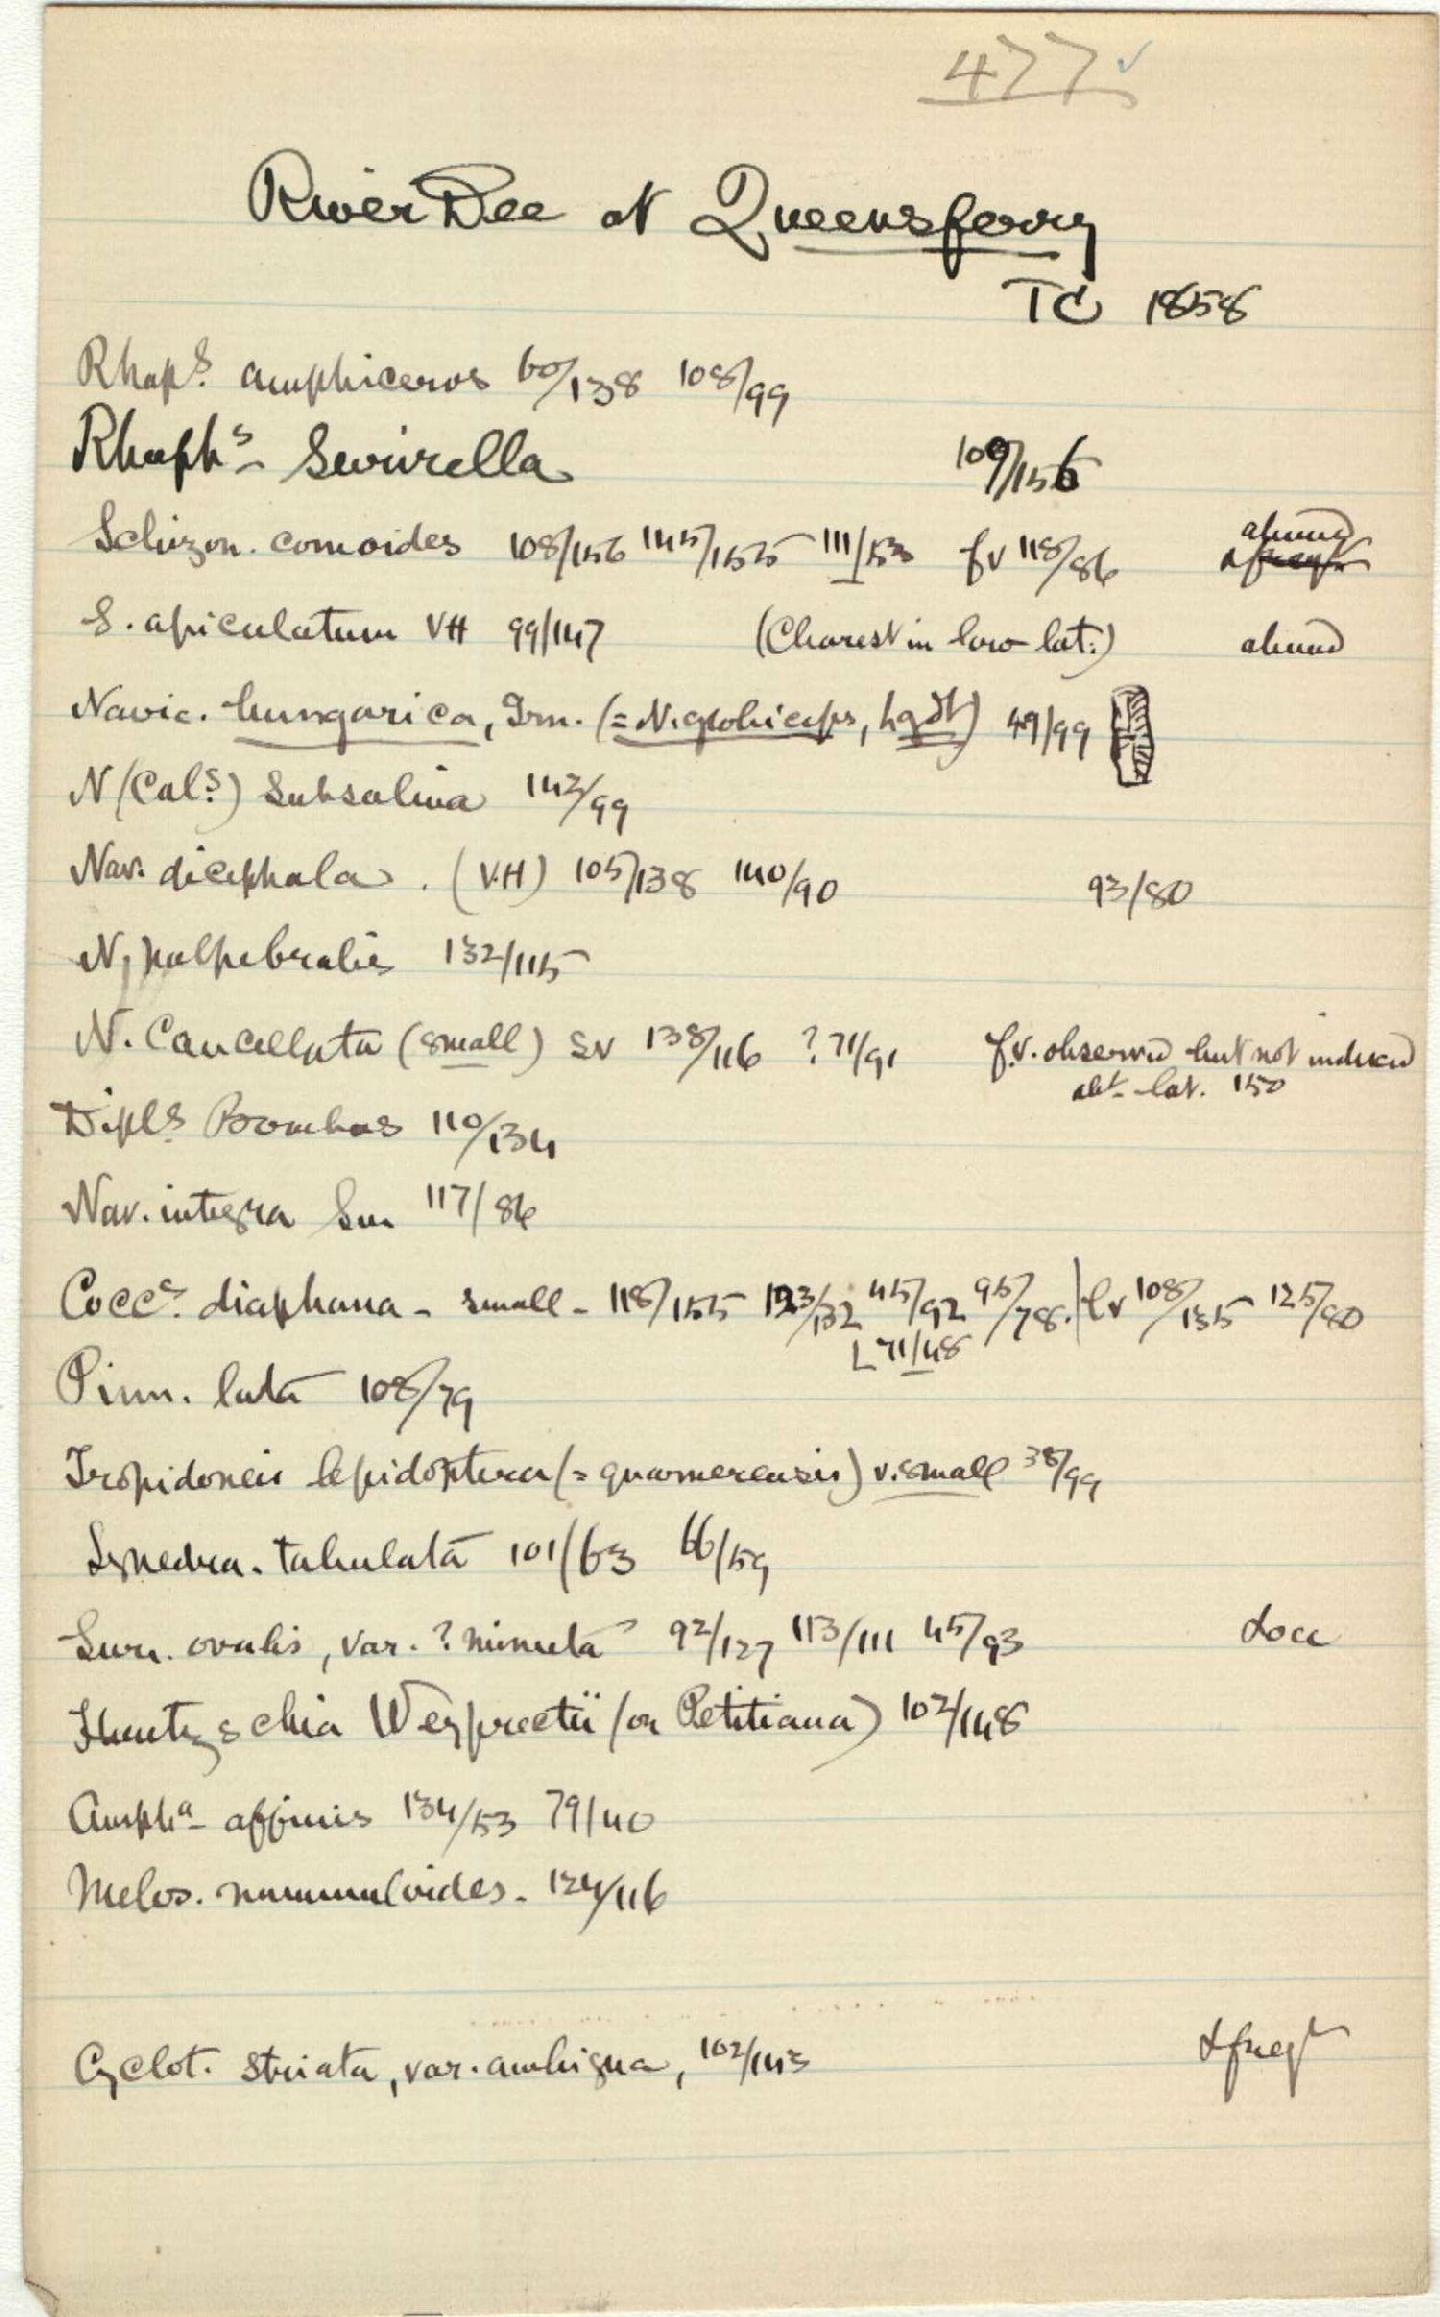 477 ✓
River Dee at Queensferry
TC 1858
Rhaps. amphiceros 60/138 108/99
Rhaphs. Surirella 109/156
Schizon. comoides 108/156 145/155 111/153 fv 118/86 abund
S. apiculatum VH 99/147 (Clearest in low lat:) abund
Navic. hungarica, Grn. (= N. globiceps, Lgdt) 49/99
N (Cals.) Subsalina 142/99
Nav. dicephala. (V.H) 105/138 140/90 93/80
N, palpebralis 132/115
N. Cancellata (small) sv 138/116 ? 71/91 f.v. observed but not indexed
abt. lat. 150
Dipls. Bombus 110/134
Nav. integra Sm 117/86
Coccs. diaphana - small - 118/155 123/132 45/92 95/78. | lv 108/135 125/80
L 71/48
Pinn. lata 108/79
Tropidoneis lepidoptera (= quarnerensis) v. small 38/99
Synedra. tabulata 101/63 66/59
Surr. ovalis, var. ? minuta 92/127 113/111 45/93 Locc
Hantzschia Weyprectii (or Petitiana) 102/148
Ampha. affinis 134/53 79/40
Melos. nummuloides. 124/116
Cyclot. striata, var. ambigua, 102/143 Lfreqt